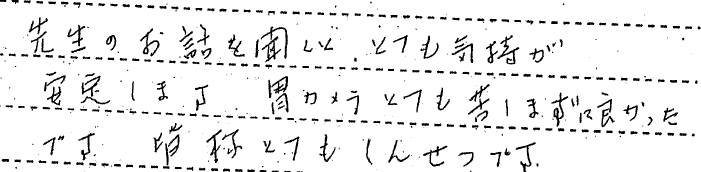 先生のお話を聞いて、とても気持が
安定します 胃カメラとても苦しまずに良かった
です 皆様とてもしんせつです。